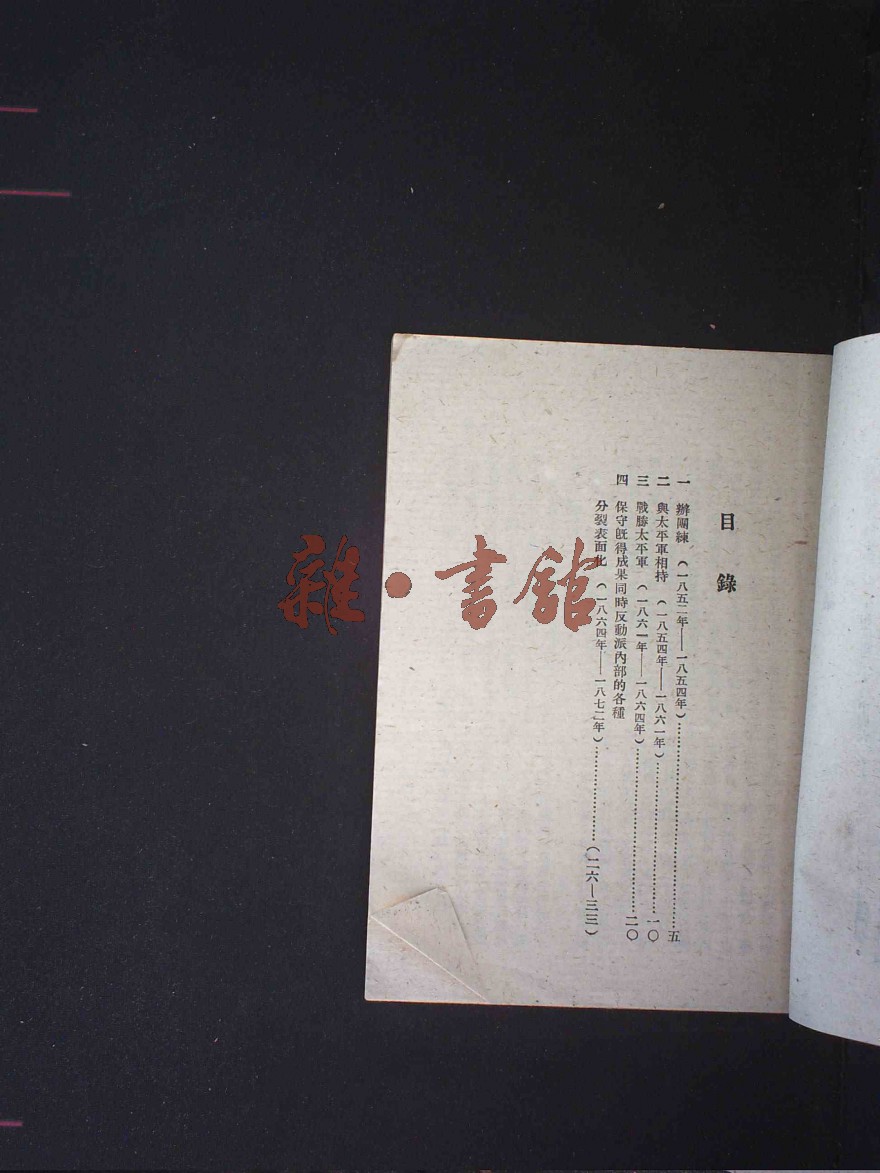 目錄
一 辦團練（一八五二年——一八五四年）……五
二 與太平軍相持（一八五四年——一八六一年）……一〇
三 戰勝太平軍（一八六一年——一八六四年）……二〇
四 保守旣得成果同時反動派內部的各種
分裂表面化（一八六四年——一八七二年）……（二六—三三）
雜·書館